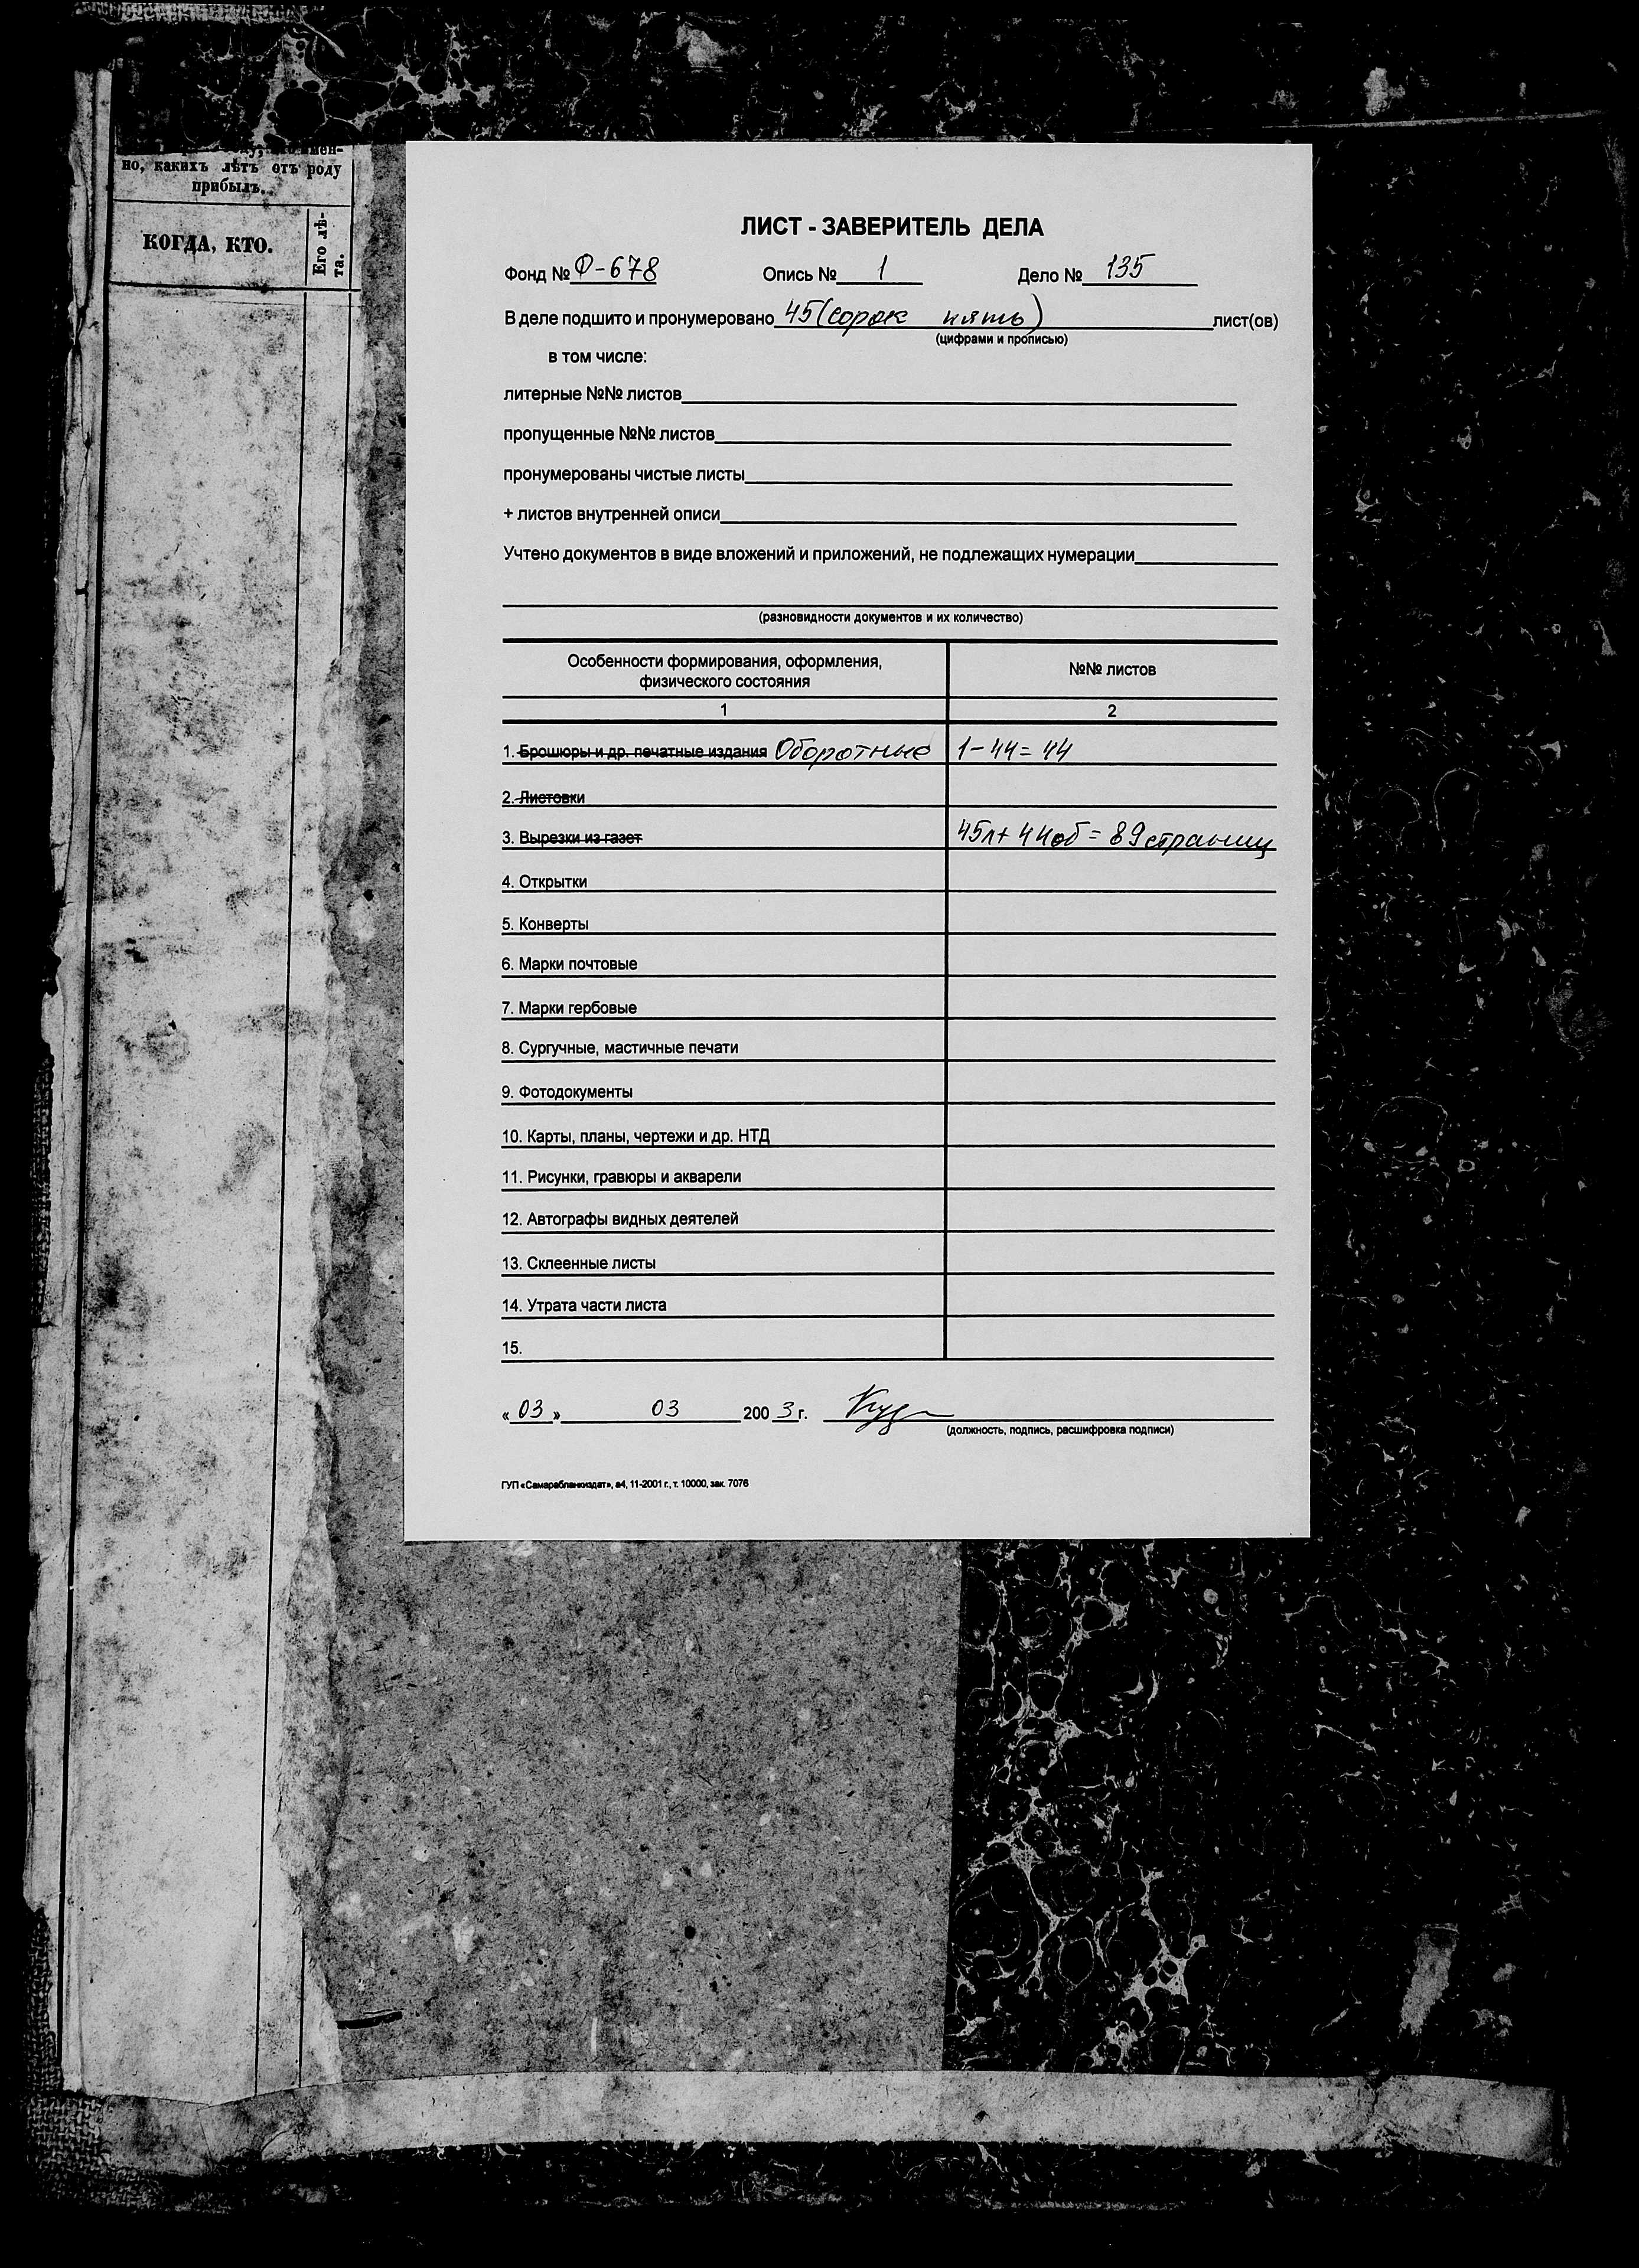 но, какихъ лѣтъ отъ роду
прибылъ.
КОГДА, КТО.
Его лѣ-
та.
ЛИСТ - ЗАВЕРИТЕЛЬ ДЕЛА
Фонд № Ф-678 Опись № 1 Дело № 135
В деле подшито и пронумеровано 45 (сорок пять) лист(ов)
(цифрами и прописью)
в том числе:
литерные №№ листов
пропущенные №№ листов
пронумерованы чистые листы
+ листов внутренней описи
Учтено документов в виде вложений и приложений, не подлежащих нумерации
(разновидности документов и их количество)
Особенности формирования, оформления, №№ листов
физического состояния
1 2
1. Брошюры и др. печатные издания Оборотные 1-44=44
2. Листовки
3. Вырезки из газет 45л+44об=89страниц
4. Открытки
5. Конверты
6. Марки почтовые
7. Марки гербовые
8. Сургучные, мастичные печати
9. Фотодокументы
10. Карты, планы, чертежи и др. НТД
11. Рисунки, гравюры и акварели
12. Автографы видных деятелей
13. Склеенные листы
14. Утрата части листа
15.
« 03 » 03 2003 г.
(должность, подпись, расшифровка подписи)
ГУП «Самарабланкиздат», а4, 11-2001 г., т. 10000, зак. 7076